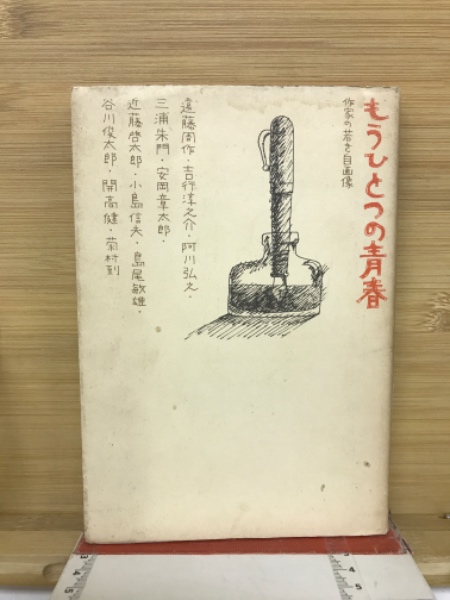 もうひとつの青春
作家の若き自画像
遠藤周作・吉行淳之介・阿川弘之・
三浦朱門・安岡章太郎・
近藤啓太郎・小島信夫・島尾敏雄・
谷川俊太郎・開高健・菊村到